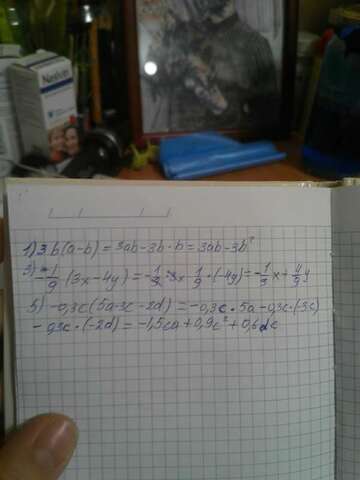 Nasivin
1) 3b(a-b) = 3ab-3b·b = 3ab-3b²
3) -1/9 (3x-4y) = -1/9·3x-1/9·(-4y) = -1/3x+4/9y
5) -0,3c(5a-3c-2d) = -0,3c·5a-0,3c·(-3c)
-0,3c·(-2d) = -1,5ca+0,9c²+0,6dc